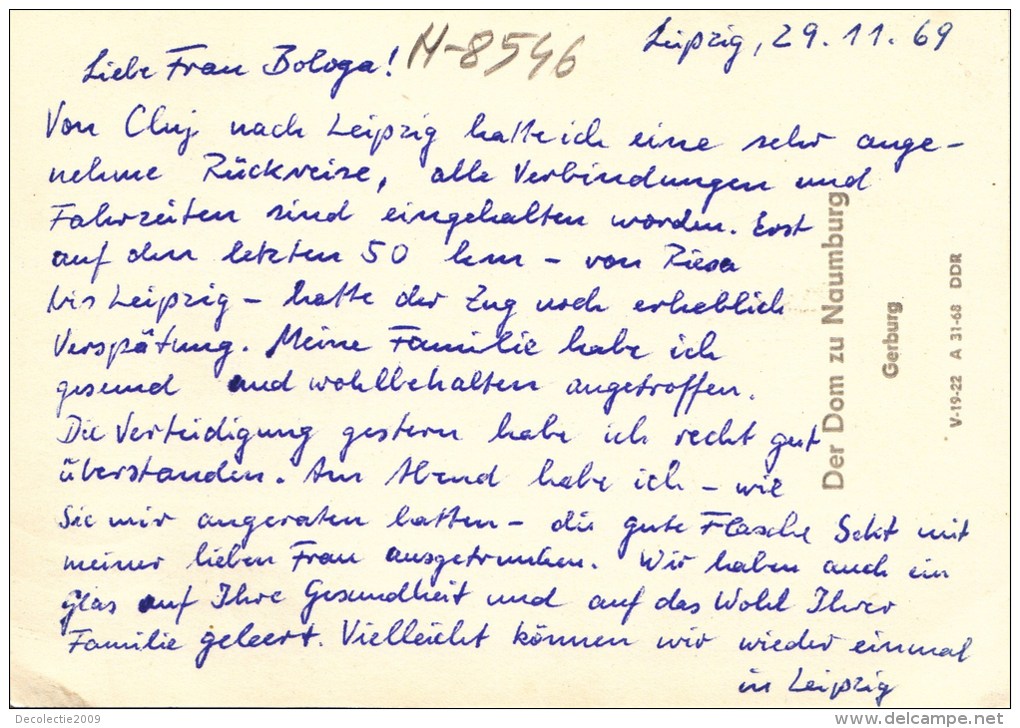 Leipzig, 29.11.69
N-8546
Liebe Frau Bologa!
Von Cluj nach Leipzig hatte ich eine sehr ange-
nehme Rückreise, alle Verbindungen und
Fahrzeiten sind eingehalten worden. Erst
auf den letzten 50 km - von Riesa
bis Leipzig - hatte der Zug noch erheblich
Verspätung. Meine Familie habe ich
gesund und wohlbehalten angetroffen.
Die Verteidigung gestern habe ich recht gut
überstanden. Am Abend habe ich - wie
Sie mir angeraten hatten - die gute Flasche Sekt mit
meiner lieben Frau ausgetrunken. Wir haben auch ein
Glas auf Ihre Gesundheit und auf das Wohl Ihrer
Familie geleert. Vielleicht können wir wieder einmal
in Leipzig
Der Dom zu Naumburg
Gerburg
V-19-22 A 31-68 DDR
Decolectie2009
delcampe.net